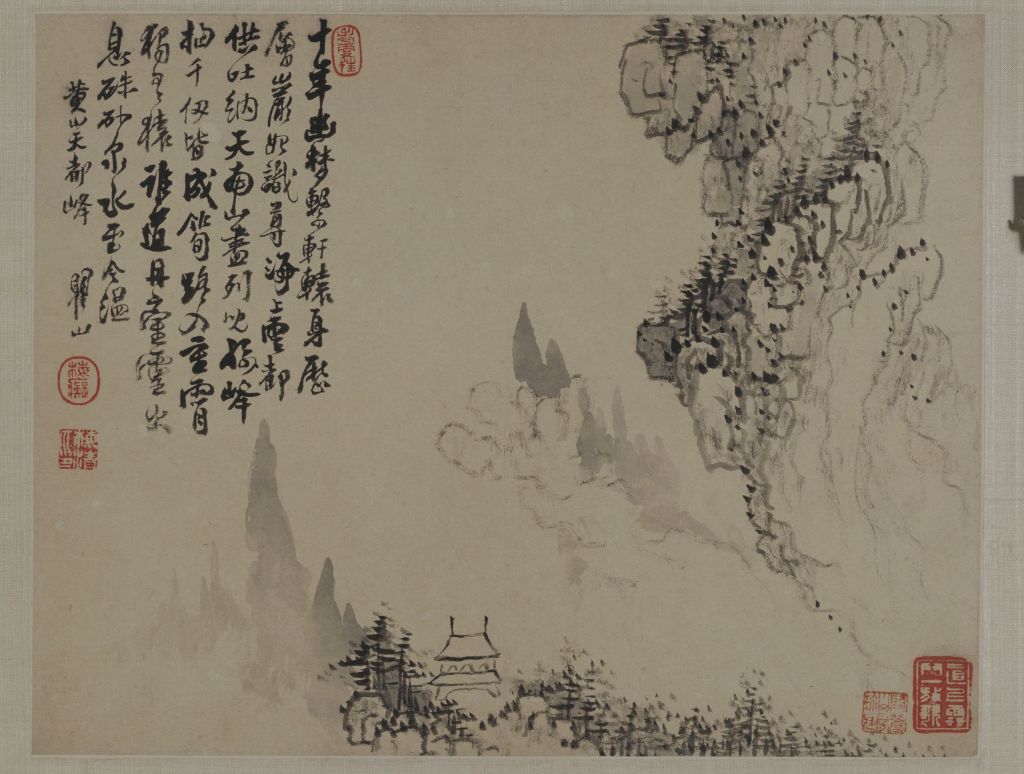 十年幽梦繫軒轅身歷
層巖始識尊海上雲都
供吐納天南山盡列兒孫峰
抽千仞皆成筍路入重霄
獨猿誰道丹臺靈火
息硃砂泉水至今温
黄山天都峰 瞿山